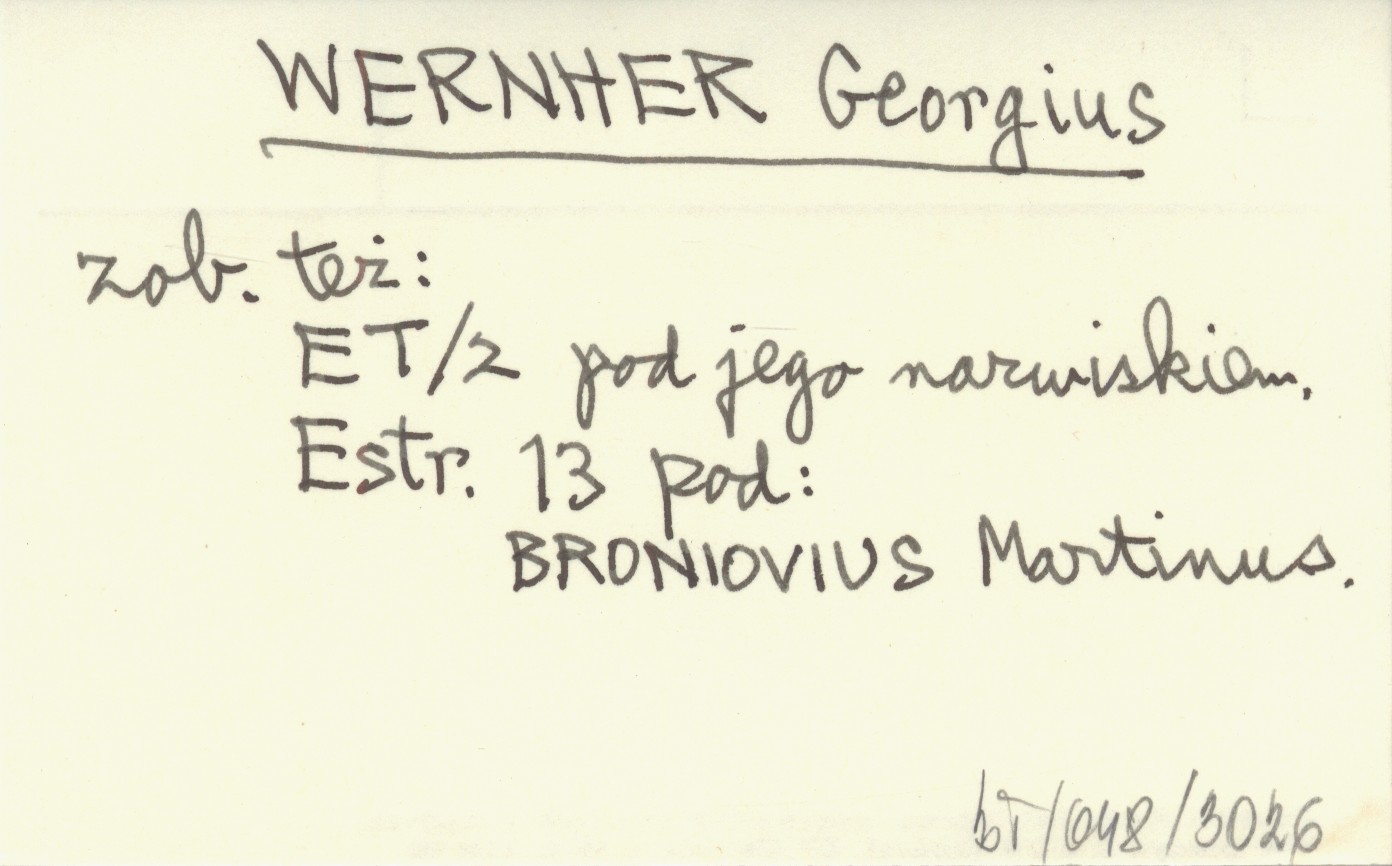 WERNHER Georgius
zob. też:
ET/2 pod jego nazwiskiem.
Estr. 13 pod:
BRONIOVIUS Martinus.
bT/048/3026